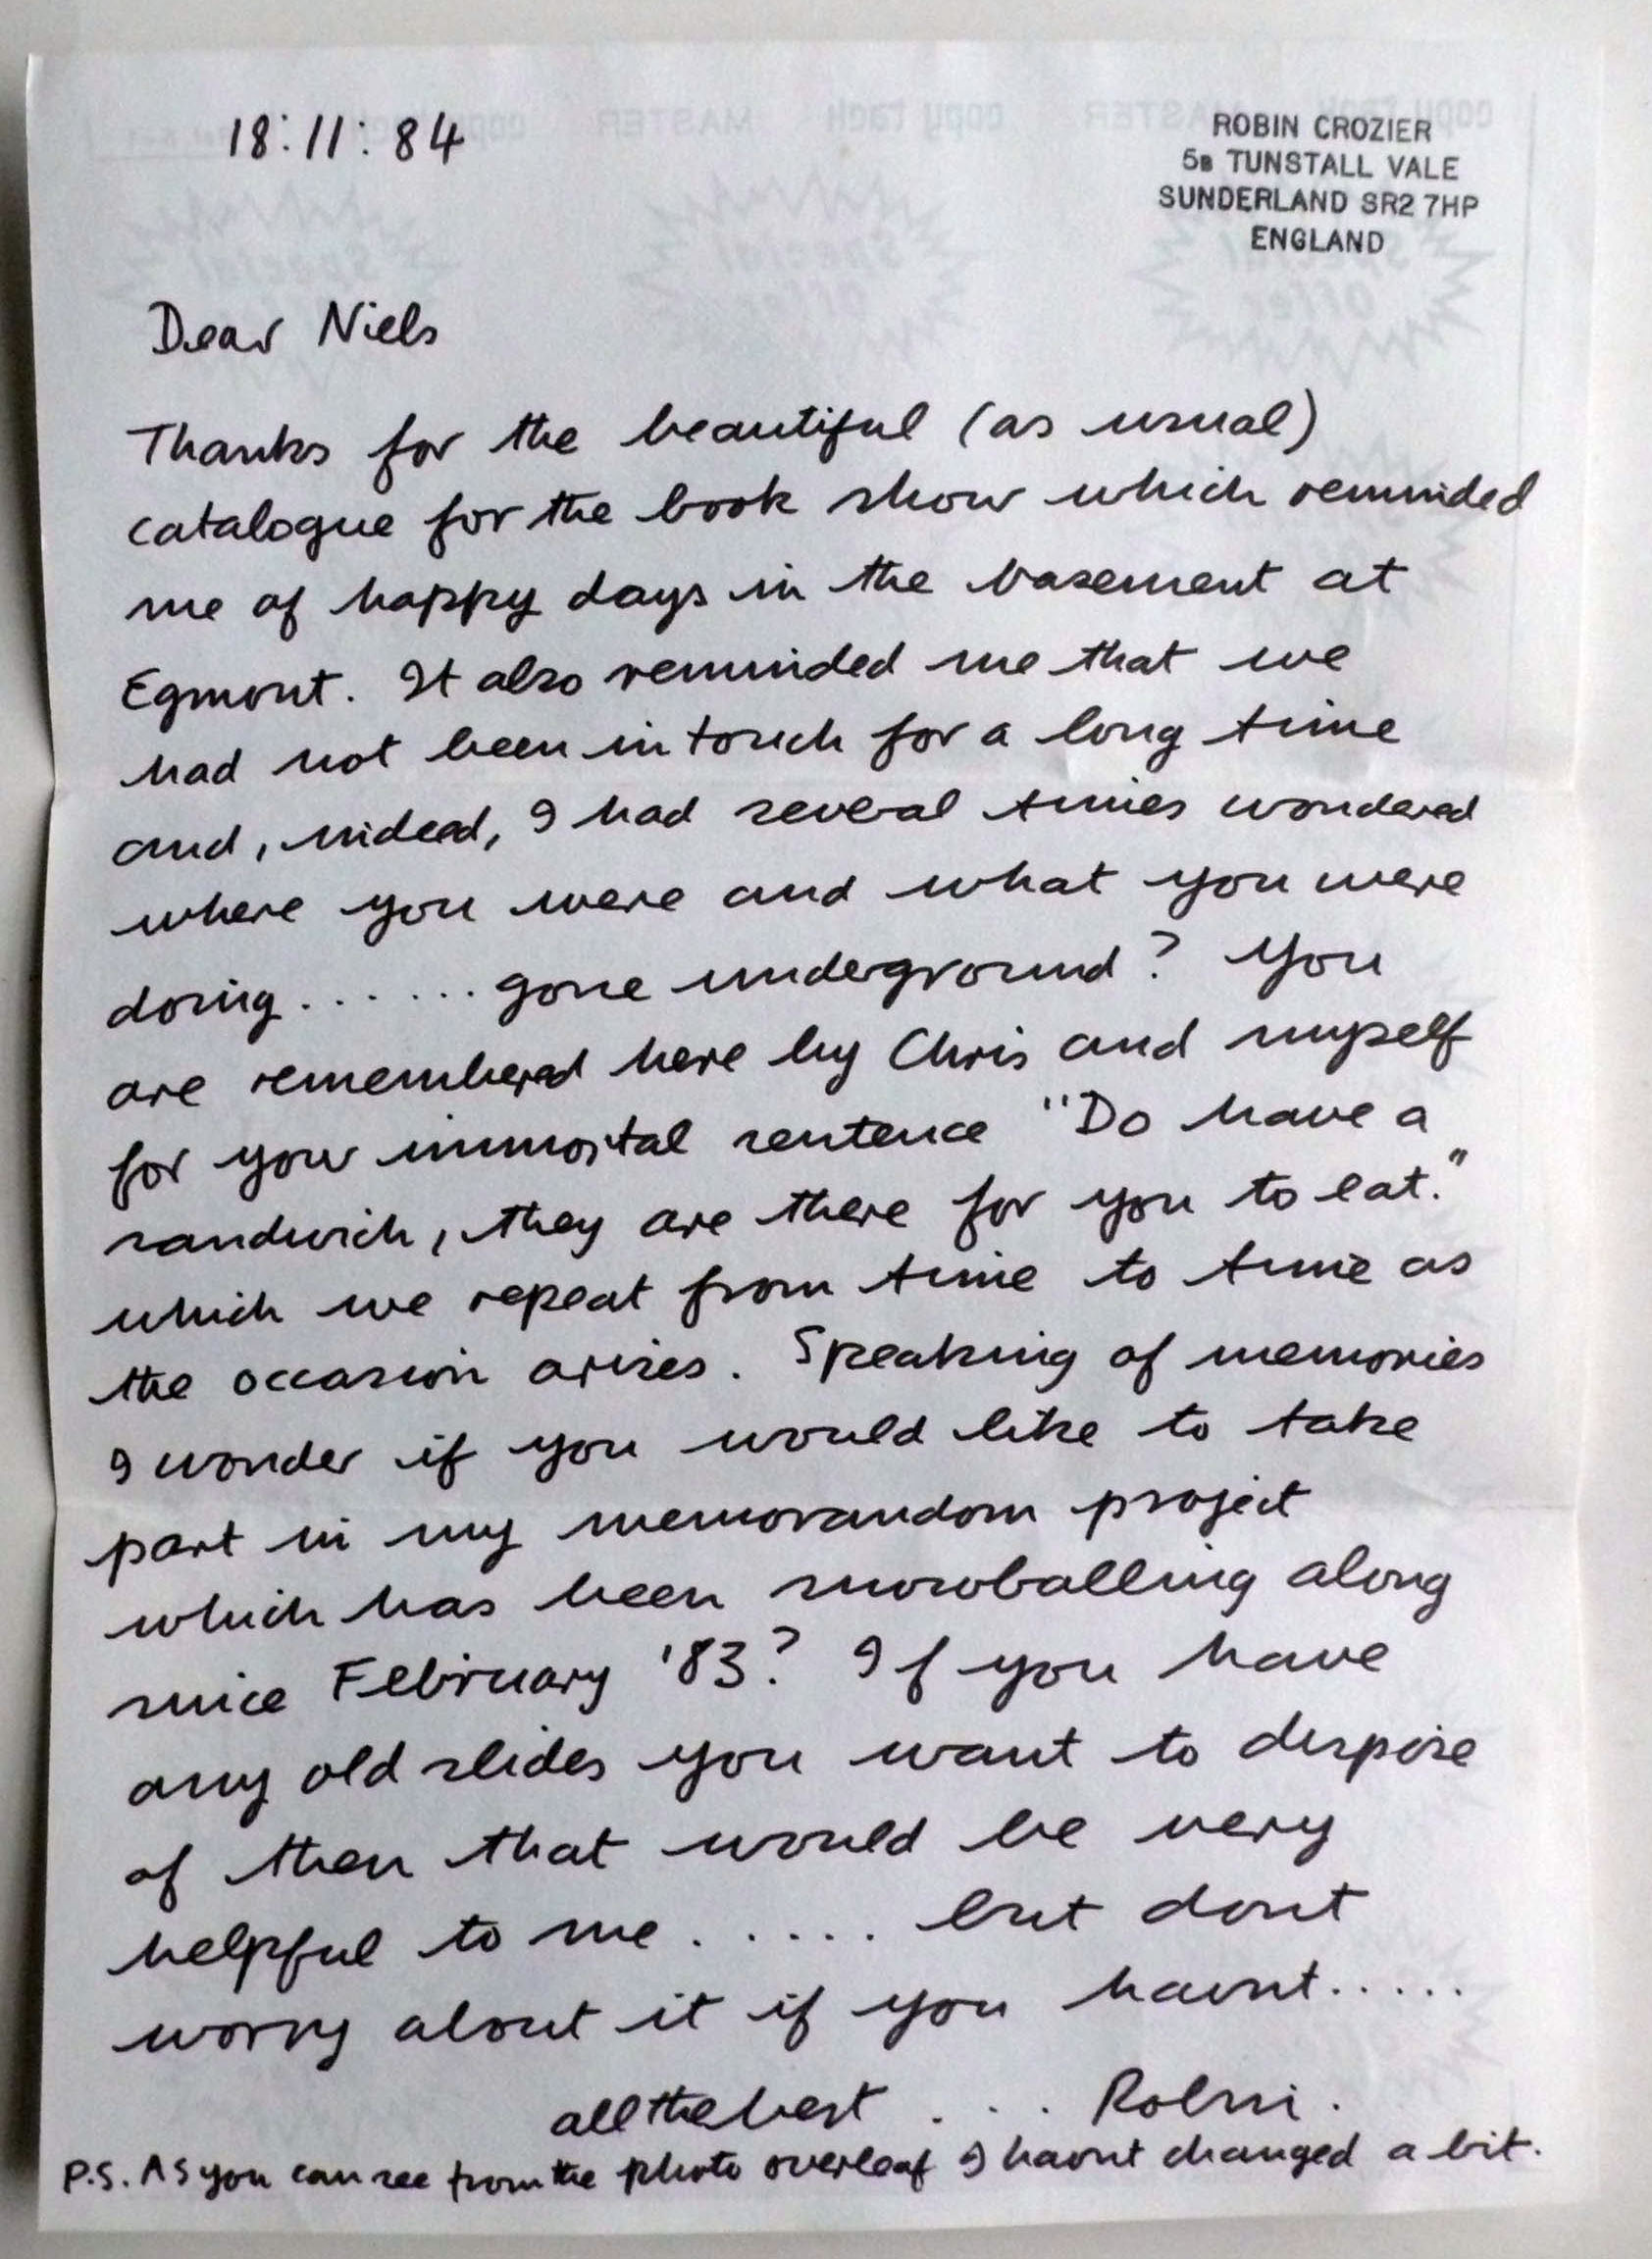 18:11:84
ROBIN CROZIER
5B TUNSTALL VALE
SUNDERLAND SR2 7HP
ENGLAND
Dear Niels
Thanks for the beautiful (as usual)
catalogue for the book show which reminded
me of happy days in the basement at
Egmont. It also reminded me that we
had not been in touch for a long time
and, indeed, I had several times wondered
where you were and what you were
doing...... gone underground? You
are remembered here by Chris and myself
for your immortal sentence "Do have a
sandwich, they are there for you to eat."
which we repeat from time to time as
the occasion arises. Speaking of memories
I wonder if you would like to take
part in my memorandom project
which has been snowballing along
since February '83? If you have
any old slides you want to dispose
of then that would be very
helpful to me...... but dont
worry about it if you havnt.....
all the best ... Robin.
P.S. As you can see from the photo overleaf I havnt changed a bit.